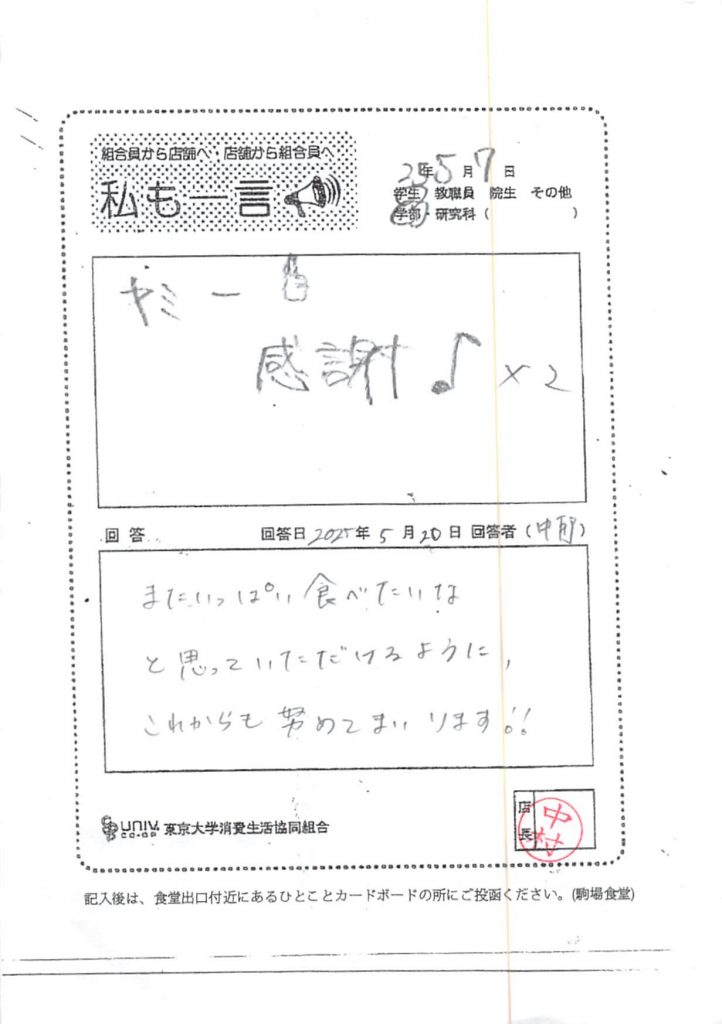 組合員から店舗へ・店舗から組合員へ
私も一言
25年5月7日
学生 教職員 院生 その他
学部・研究科（ ）
ヤミー
感謝♪×2
回答 回答日2025年5月20日 回答者（中村）
またいっぱい食べたいな
と思っていただけるように、
これからも努めてまいります!!
UNIV. CO-OP 東京大学消費生活協同組合
店長 中村
記入後は、食堂出口付近にあるひとことカードボードの所にご投函ください。(駒場食堂)